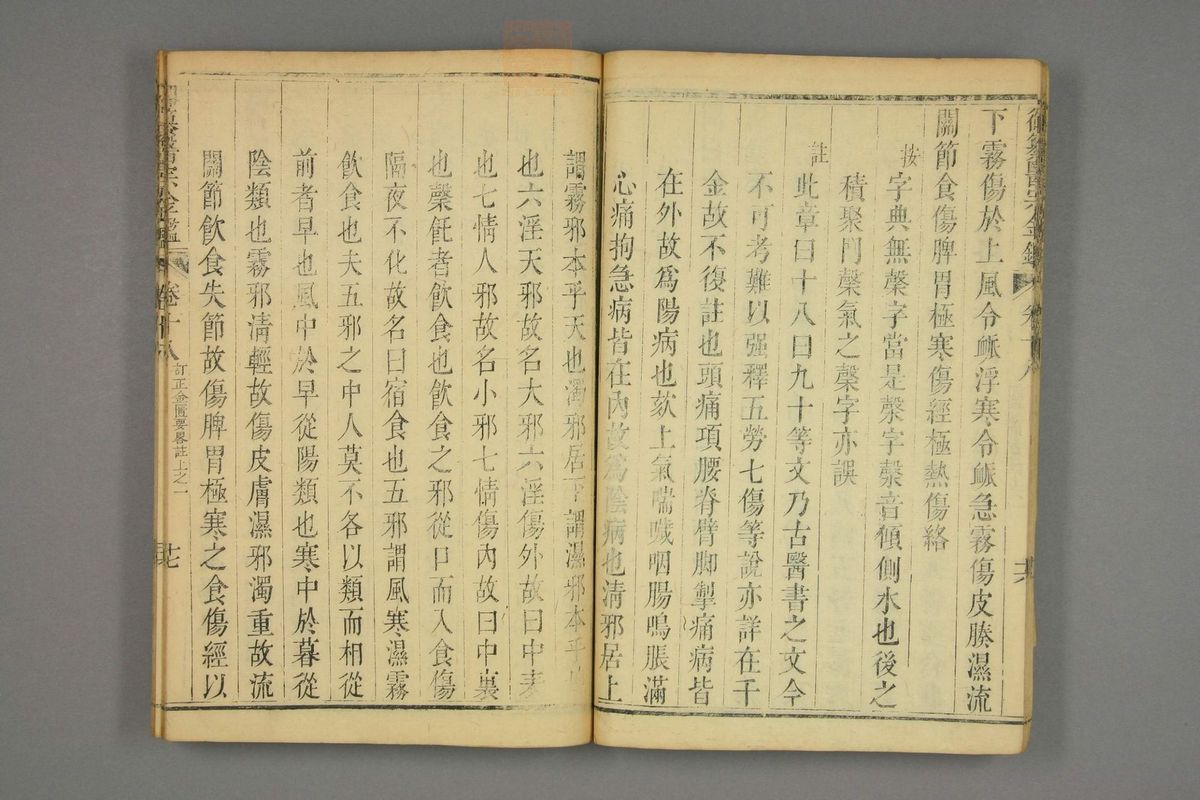 御纂醫宗金鑑 卷十八
下霧傷於上風令脈浮寒令脈急霧傷皮腠濕流
關節食傷脾胃極寒傷經極熱傷絡
按
字典無䅽字當是漀字漀音傾側水也後之
積聚門䅽氣之䅽字亦誤
註
此章曰十八曰九十等文乃古醫書之文今
不可考難以强釋五勞七傷等說亦詳在千
金故不復註也頭痛項腰脊臂脚掣痛病皆
在外故爲陽病也欬上氣喘噦咽腸鳴脹滿
心痛拘急病皆在內故爲陰病也清邪居上
謂霧邪本乎天也濁邪居下謂濕邪本乎地
也六淫天邪故名大邪六淫傷外故曰中表
也七情人邪故名小邪七情傷內故曰中裏
也䅽飥者飲食也飲食之邪從口而入食傷
隔夜不化故名曰宿食也五邪謂風寒濕霧
飲食也夫五邪之中人莫不各以類而相從
前者早也風中於早從陽類也寒中於暮從
陰類也霧邪清輕故傷皮膚濕邪濁重故流
關節飲食失節故傷脾胃極寒之食傷經以
御纂醫宗金鑑 卷十八 訂正金匱要畧註上之一